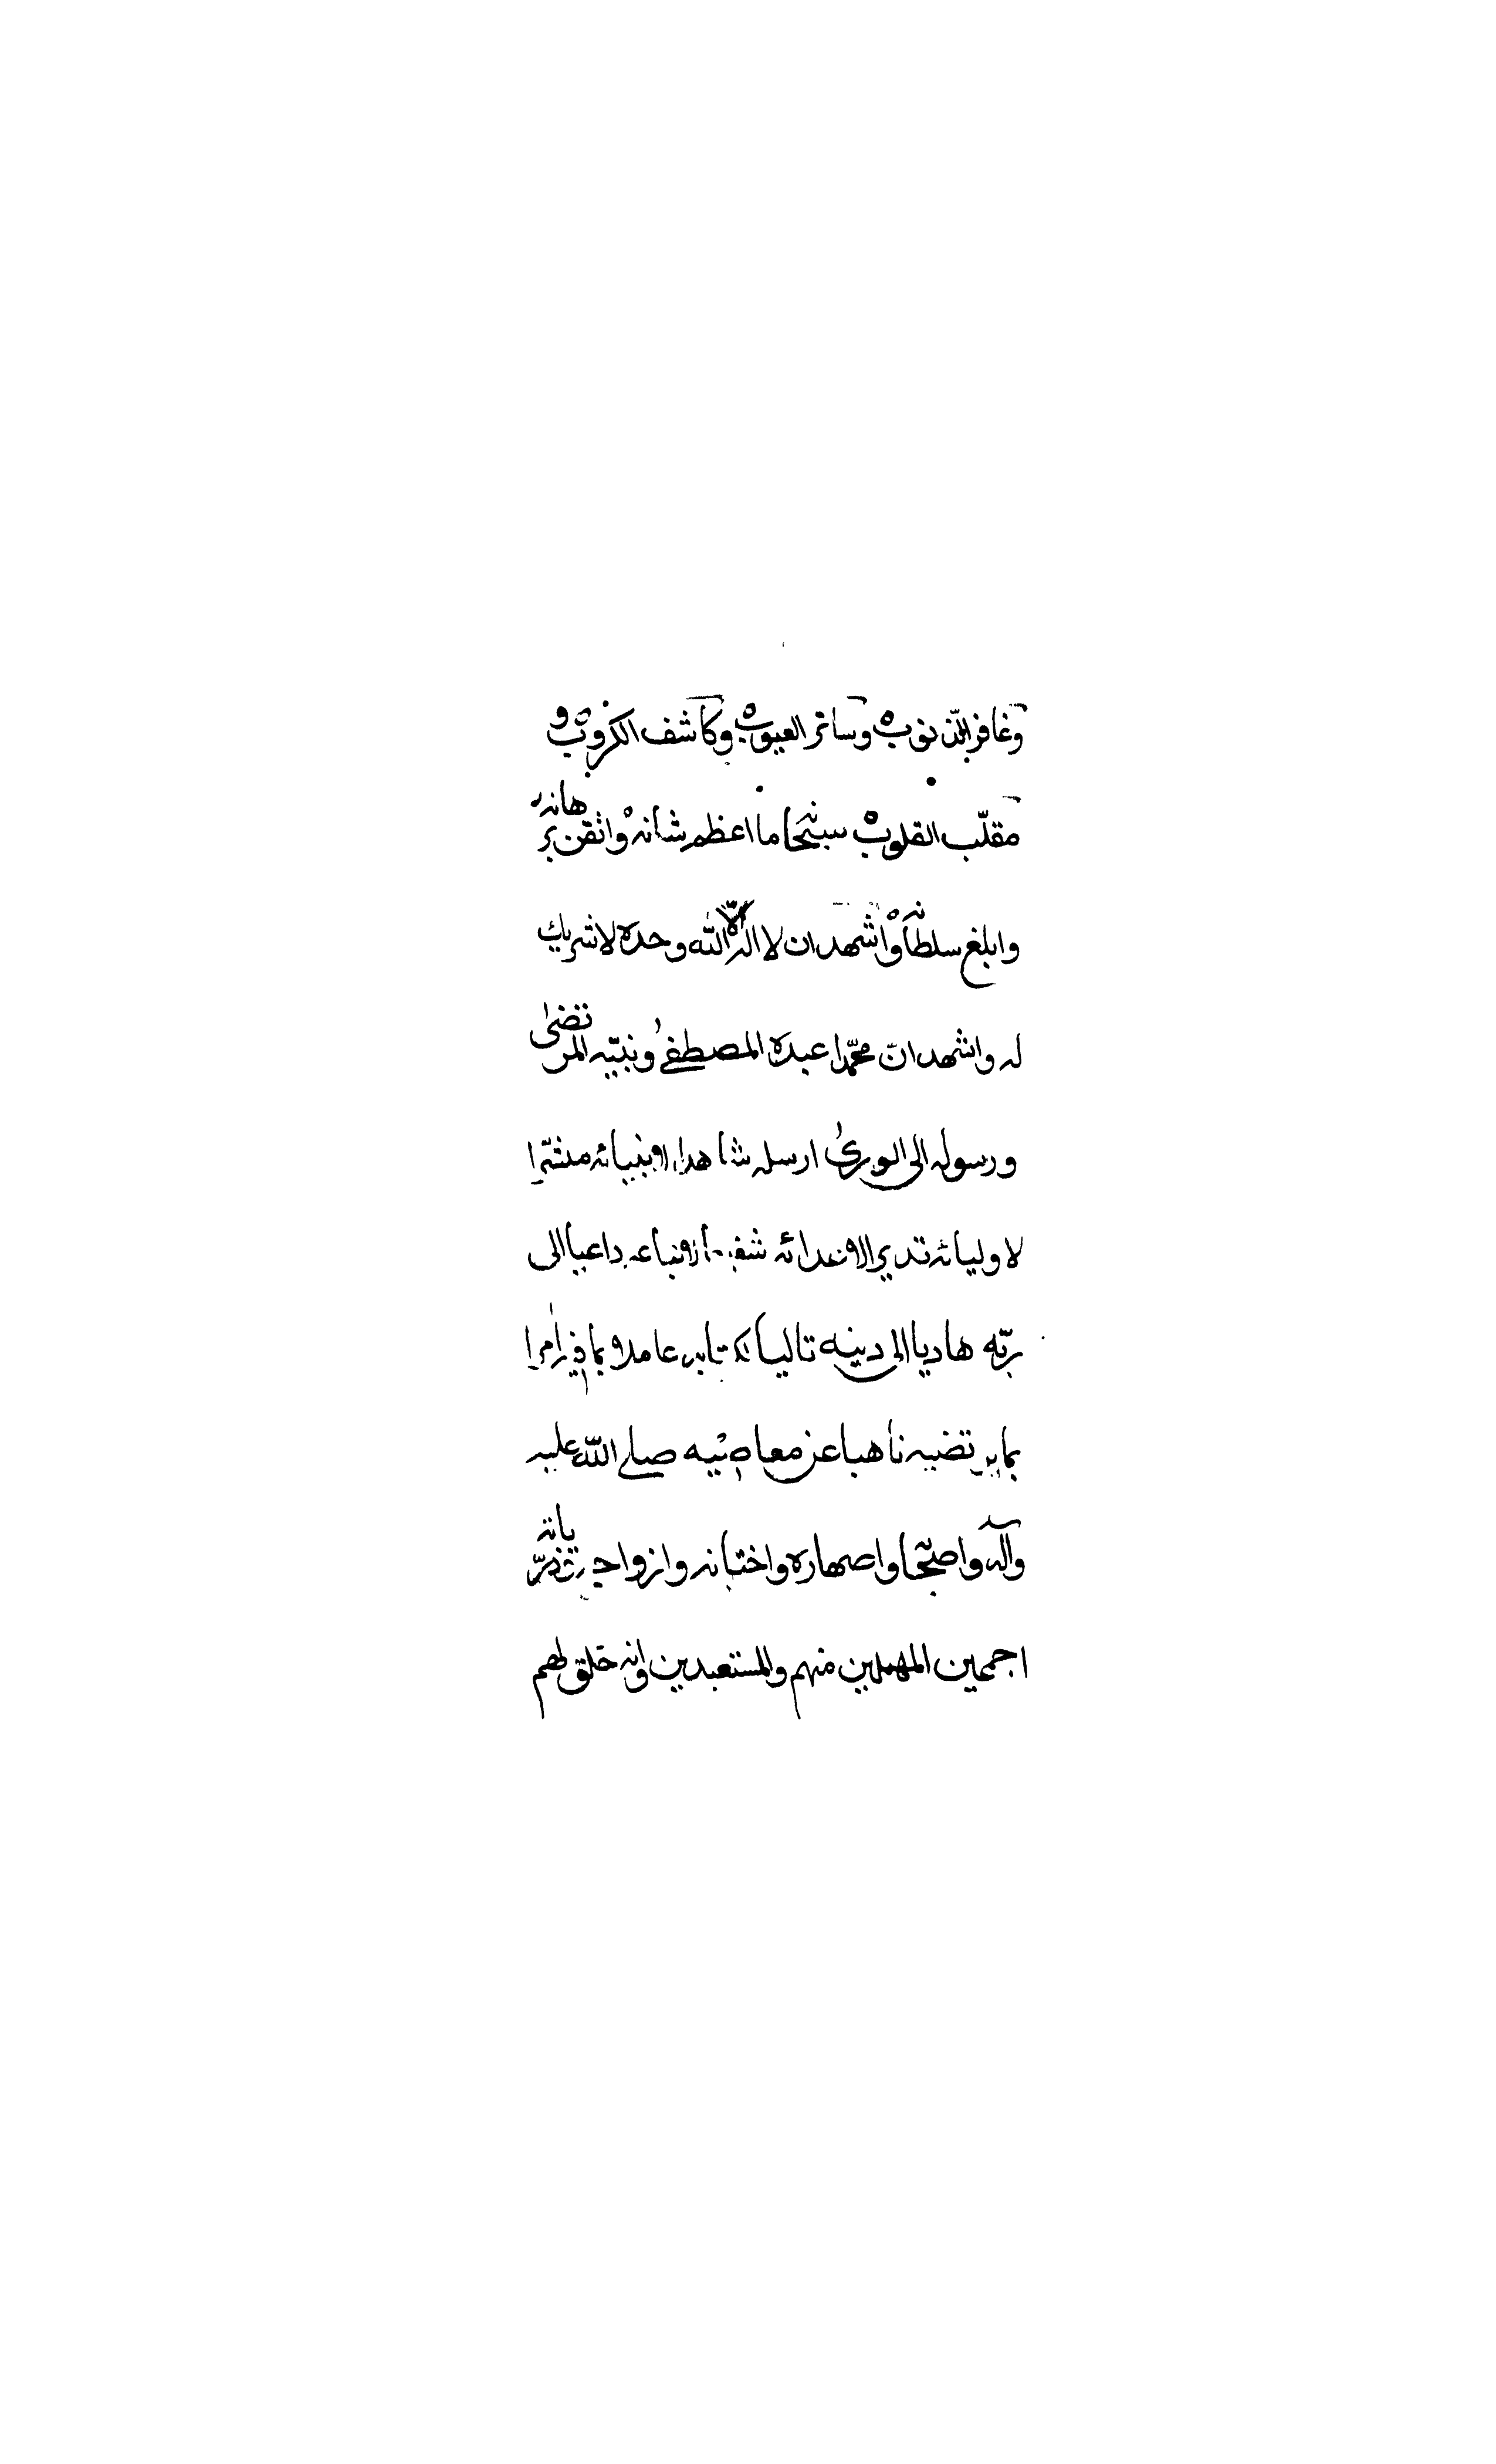 وغافر الذنوب وساتر العيوب وكاشف الكروب و
مقلّب القلوب سبحانه ما اعظم شانه واتقن برهانه
وابلغ سلطانه واشهد ان لا اله الّا الله وحده لا شريك
له واشهد انّ محمّدا عبده المصطفى ونبيّه المرتضى
ورسوله الى الورى ارسله شاهدا لانبيائه مبشّرا
لاوليائه نذيرا لاعدائه شفيعا لاتباعه داعيا الى
ربّه هاديا الى دينه تاليا لكتابه عاملا بما فيه امرا
بما يرتضيه ناهيا عن معاصيه صلى الله عليه
وآله واصحابه واصهاره واختانه وازواجه وذرّياته
اجمعين المهملين منهم والمستعبدين وانه خلق لهم